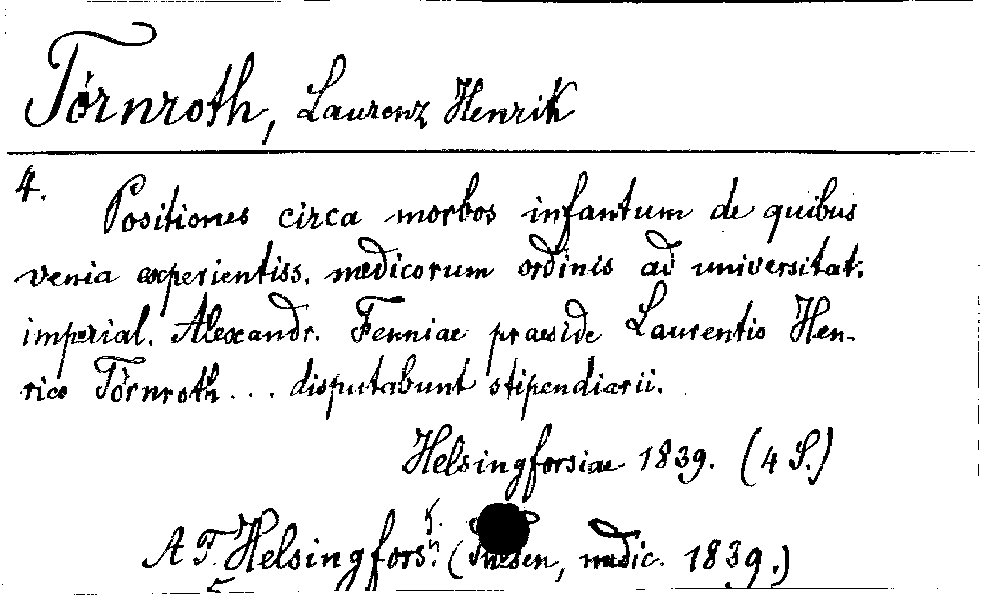 Törnroth, Laurenz Henrik
4.
Positiones circa morbos infantum de quibus
venia experientiss. medicorum ordinis ad universitat.
imperial. Alexandr. Fenniae praeside Laurentio Hen-
rico Törnroth... disputabunt stipendiarii.
Helsingforsiae 1839. (4 S.)
A F. Helsingfors. (Thesen, medic. 1839.)